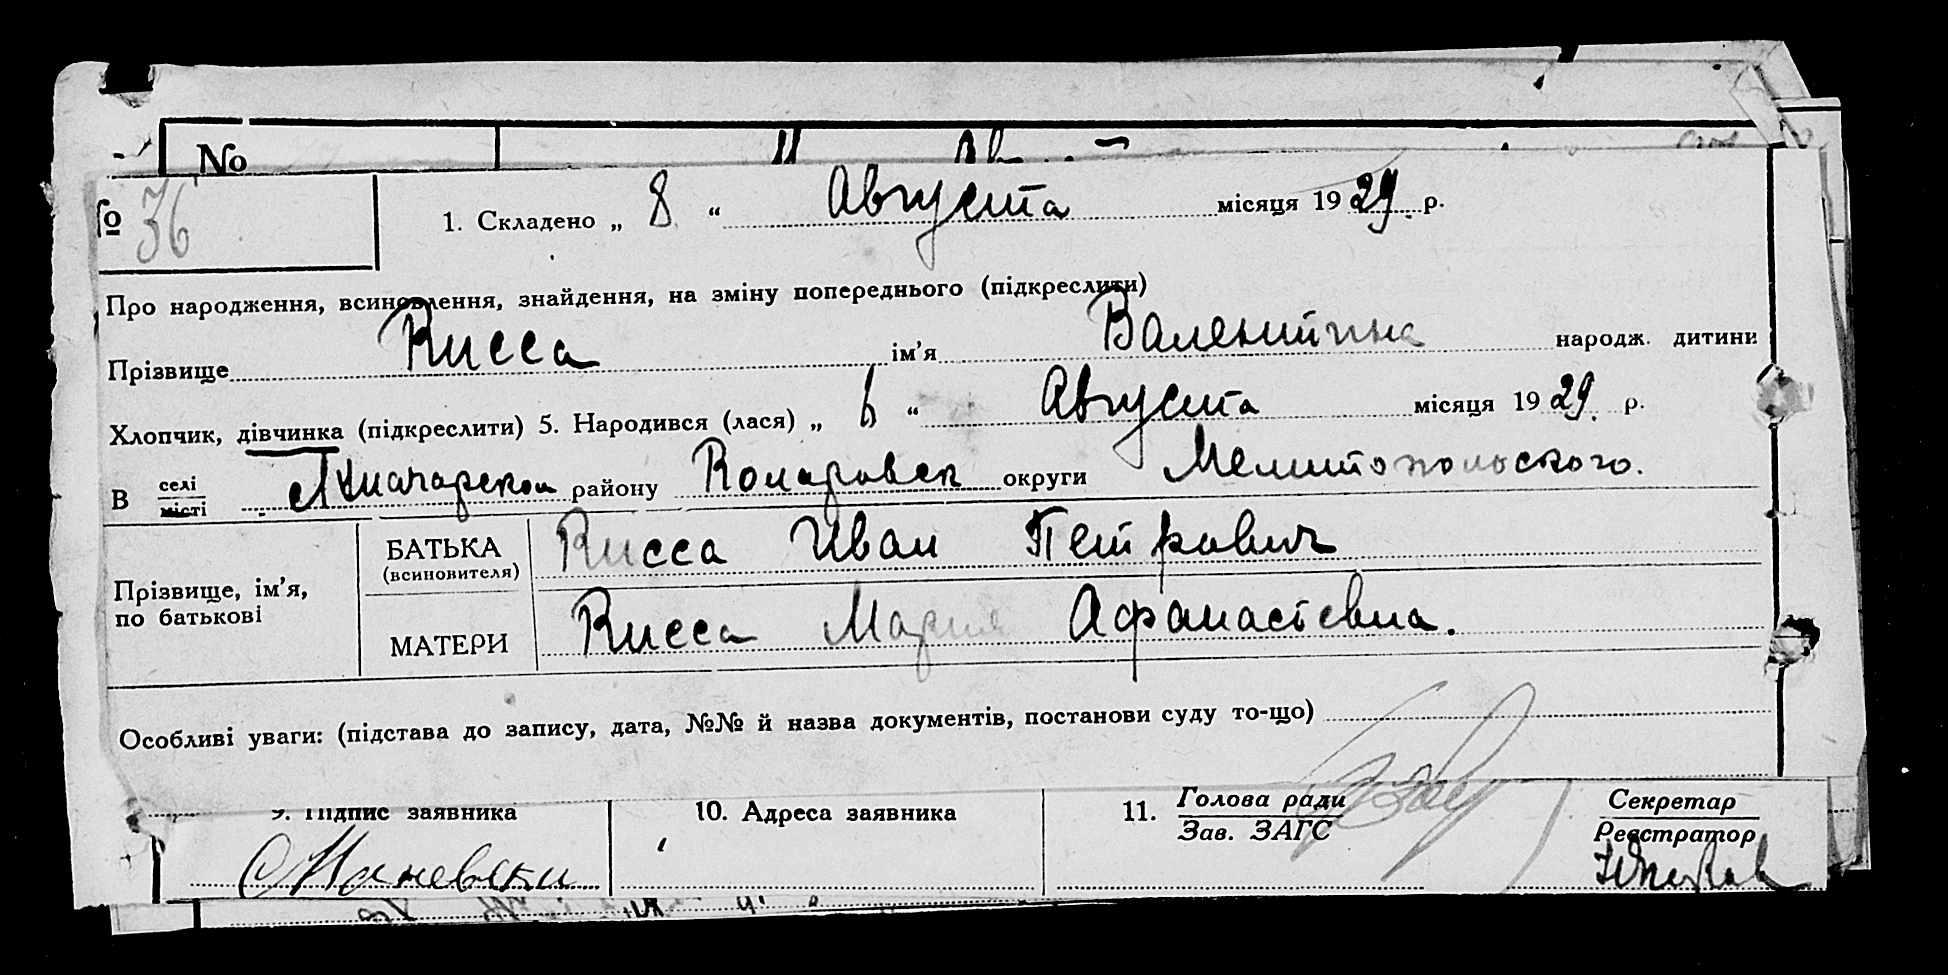 №
№ 36
1. Складено „ 8 “ Августа місяця 1929 р.
Про народження, всиновлення, знайдення, на зміну попереднього (підкреслити)
Прізвище Кисса ім’я Валентина народж. дитини
Хлопчик, дівчинка (підкреслити) 5. Народився (лася) „ 6 “ Августа місяця 1929 р.
В селі
місті
району округи Мелитопольского.
Прізвище, ім’я,
по батькові
БАТЬКА
(всиновителя)
Кисса Иван Петрович
МАТЕРИ
Кисса Мария Афанасьевна.
Особливі уваги: (підстава до запису, дата, №№ й назва документів, постанови суду то-що)
9. Підпис заявника
10. Адреса заявника
11. Голова ради
Зав. ЗАГС
Секретар
Реєстратор